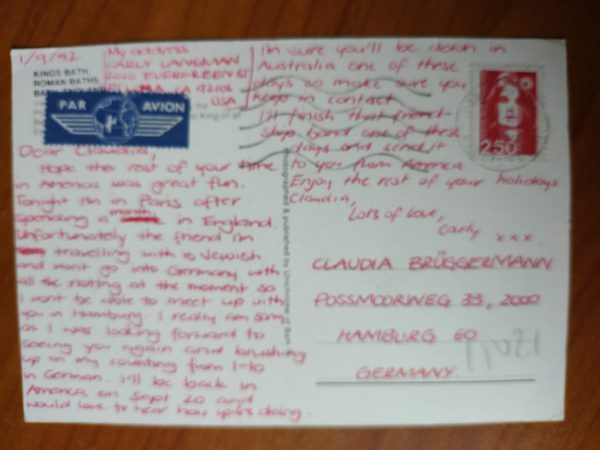 1/9/92
My address
CARLY LANGMAN
EVERGREEN ST
CA 92106
USA
KINGS BATH,
ROMAN BATHS,
BATH, ENGLAND
the
King of all
PAR AVION
Dear Claudia,
Hope the rest of your time
in America was great fun.
Tonight I'm in Paris after
spending a month in England.
Unfortunately the friend I'm
travelling with is Jewish
and wont go into Germany with
all the rioting at the moment so
I wont be able to meet up with
you in Hamburg. I really am sorry
as I was looking forward to
seeing you again and brushing
up on my counting from 1-10
in German. I'll be back in
America on Sept 20 and
would love to hear how you're doing.
I'm sure you'll be down in
Australia one of these
days so make sure you
keep in contact
I'll finish that friend-
ship band one of these
days and send it
to you from America.
Enjoy the rest of your holidays
Claudia,
Lots of love,
Carly
x x x.
2,50
Photographed & published by Unichrome of Bath
CLAUDIA BRÜGGERMANN
POSSMOORWEG 33, 2000
HAMBURG 60
GERMANY